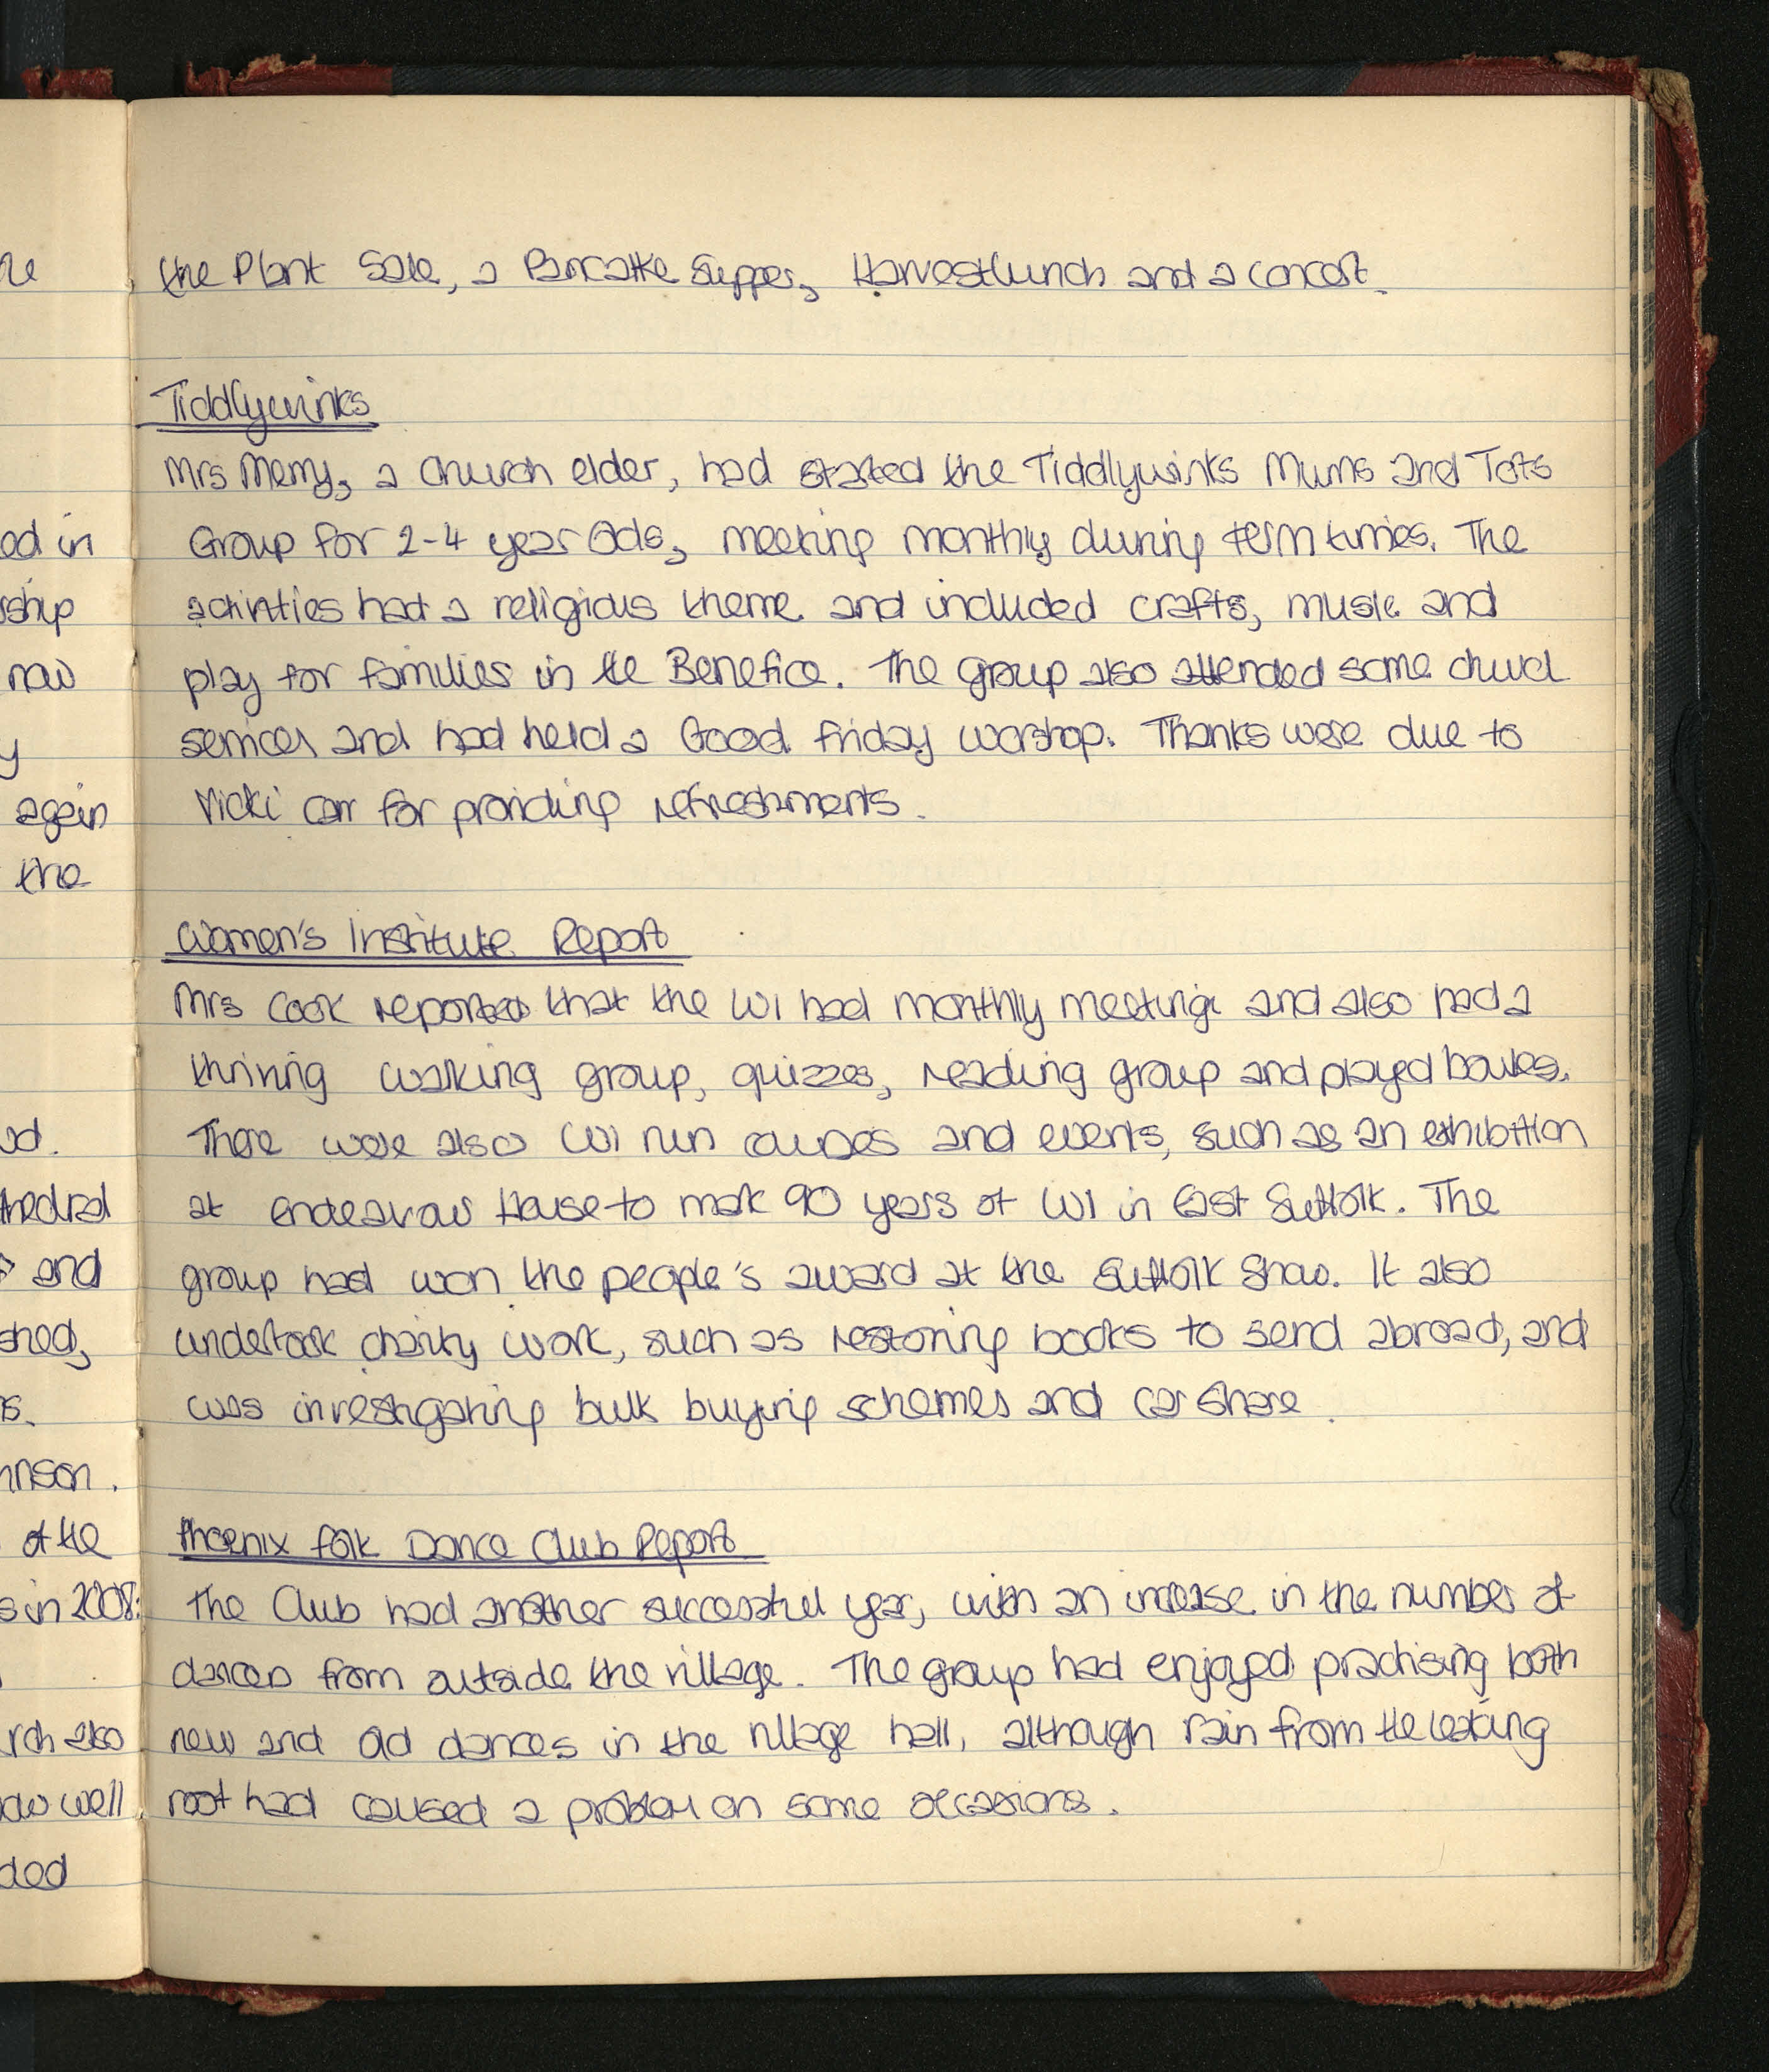 the Plant Sale, a Pancake Supper, Harvest lunch and a concert.
Tiddlywinks
Mrs Merry, a church elder, had started the Tiddlywinks Mums and Tots
Group for 2-4 year olds, meeting monthly during term times. The
activities had a religious theme and included crafts, music and
play for families in the Benefice. The group also attended some church
services and had held a Good Friday worshop. Thanks were due to
Vicki Carr for providing refreshments.
Women's Institute Report
Mrs Cook reported that the WI had monthly meetings and also had a
thriving walking group, quizzes, reading group and played boules.
There were also WI run courses and events, such as an exhibition
at Endeavour House to mark 90 years of WI in East Suffolk. The
group had won the people's award at the Suffolk Show. It also
undertook charity work, such as restoring books to send abroad, and
was investigating bulk buying schemes and car share.
Phoenix Folk Dance Club Report
The Club had another successful year, with an increase in the number of
dancers from outside the village. The group had enjoyed practising both
new and old dances in the village hall, although rain from the leaking
roof had caused a problem on some occasions.
od in
rship
now
y
again
the
od.
thedral
and
shed,
s.
hnson.
of the
s in 2008.
rch also
ow well
ded